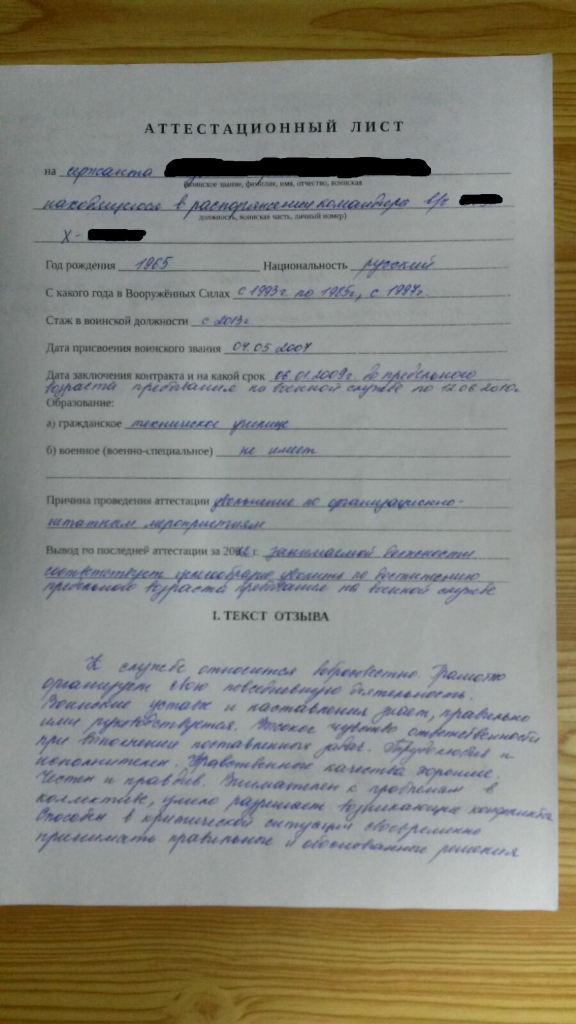 АТТЕСТАЦИОННЫЙ ЛИСТ
на сержанта
(воинское звание, фамилия, имя, отчество, воинская
находящегося в распоряжении командира в/ч
должность, воинская часть, личный номер)
X-
Год рождения 1965 Национальность русский
С какого года в Вооружённых Силах с 1993г. по 1985г., с 1997г.
Стаж в воинской должности с 2013г.
Дата присвоения воинского звания 04.05.2007
Дата заключения контракта и на какой срок 06.01.2009г. до предельного
возраста пребывания на военной службе по 12.06.2010г.
Образование:
а) гражданское техническое училище
б) военное (военно-специальное) не имеет
Причина проведения аттестации увольнение по организационно-
штатным мероприятиям
Вывод по последней аттестации за г. занимаемой должности
соответствует целесообразно уволить по достижению
предельного возраста пребывания на военной службе
I. ТЕКСТ ОТЗЫВА
К службе относится добросовестно. Грамотно
организует свою повседневную деятельность.
Воинские уставы и наставления знает, правильно
ими руководствуется. Высокое чувство ответственности
при выполнении поставленных задач. Трудолюбив и
исполнителен. Нравственные качества хорошие.
Честен и правдив. Внимателен к проблемам в
коллективе, умело разрешает возникающие конфликты
Способен в критической ситуации своевременно
принимать правильные и обоснованные решения